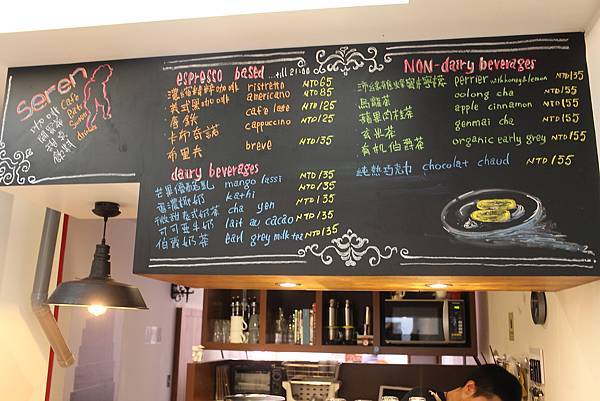 Seren
espresso based ...till 21:00
濃縮精粹咖啡 ristretto NTD65
美式黑咖啡 americano NTD85
拿鐵 cafe late NTD125
卡布奇諾 cappuccino NTD125
布里夫 breve NTD135
dairy beverages
芒果優酪乳 mango lassi NTD135
kathi NTD135
微甜泰式奶茶 cha yen NTD135
可可亞牛奶 lait au cacao NTD135
伯爵奶茶 earl grey milk tea NTD135
NON-dairy beverages
沛綠雅蜂蜜檸檬 perrier with honey & lemon NTD155
烏龍茶 oolong cha NTD155
蘋果肉桂茶 apple cinnamon NTD155
玄米茶 genmai cha NTD155
有机伯爵茶 organic early grey NTD155
純熱巧克力 chocolat chaud NTD155